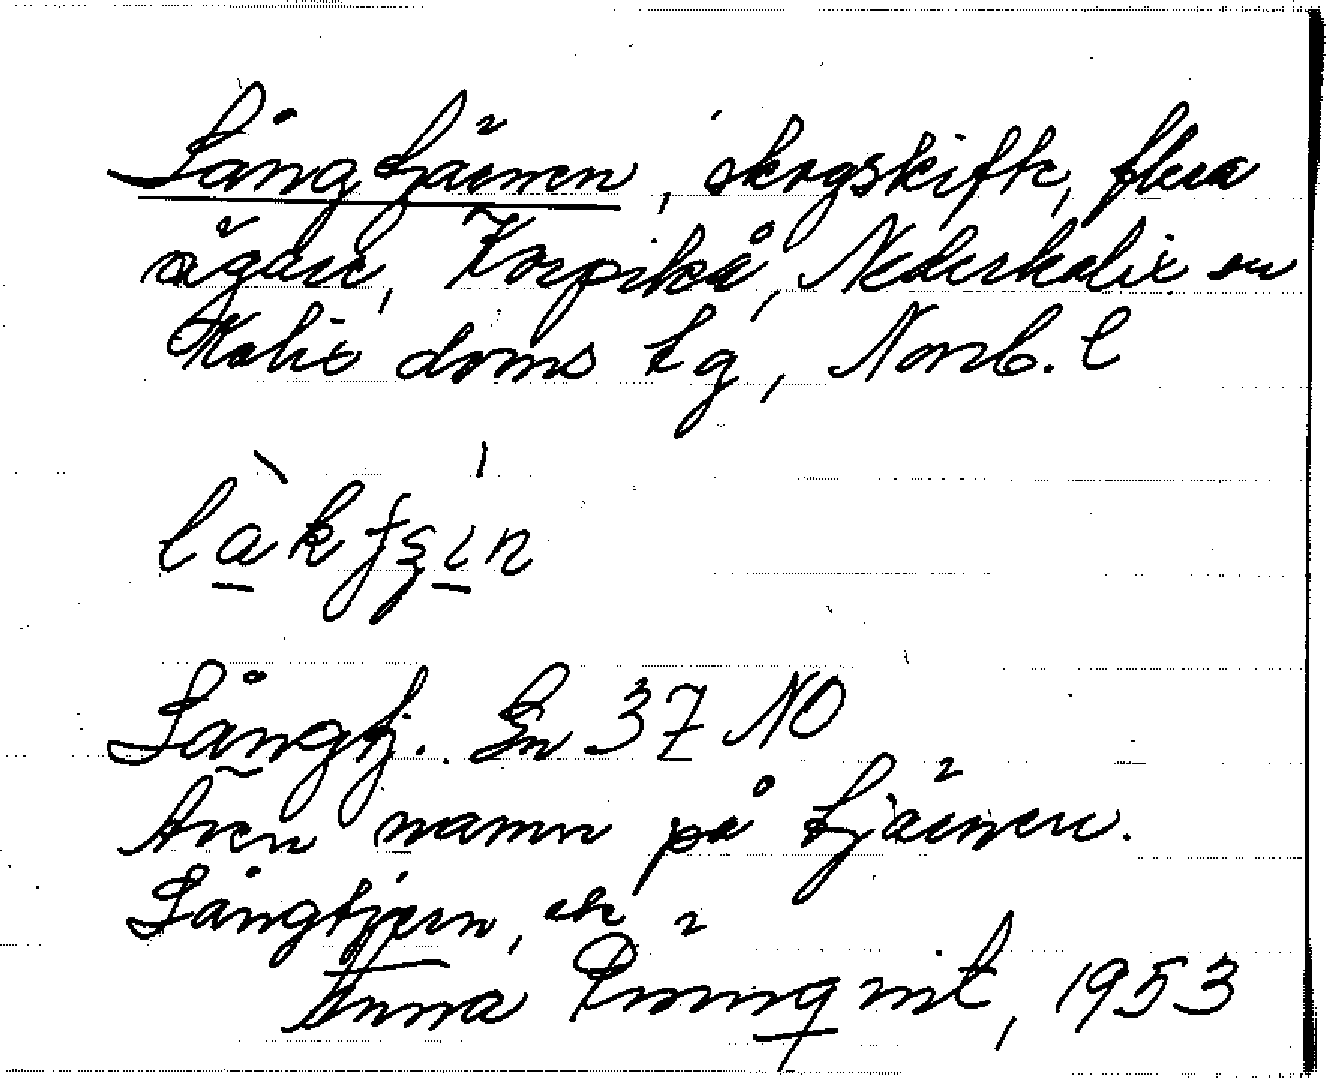 Långtjärnen, skogskifte, flera
ägare, Korpikå, Nederkalix sn
Kalix doms tg, Norrb. l
Långtj. En 37 NO
Även namn på tjärnen.
Långtjern, ek
Anna Rönnqvist, 1953